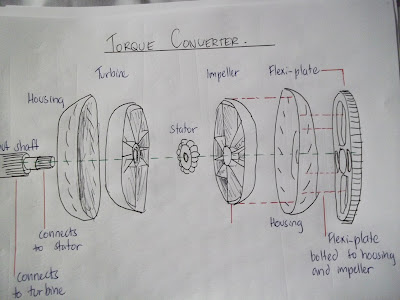 TORQUE CONVERTER.
Turbine
Impeller
Flexi-plate
Housing
Stator
ut shaft
connects
to stator
connects
to turbine
Housing
Flexi-plate
bolted to housing
and impeller